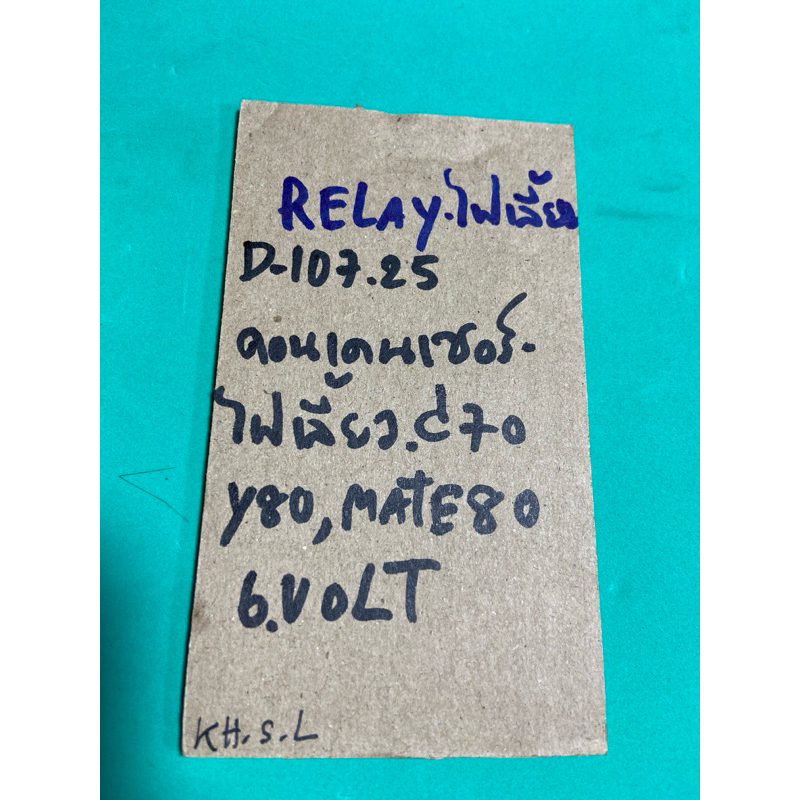 RELAY.ไฟเลี้ยว
D-107.25
คอนเดนเซอร์-
ไฟเลี้ยว.C70
Y80, MATE80
6.VOLT
KH.S.L